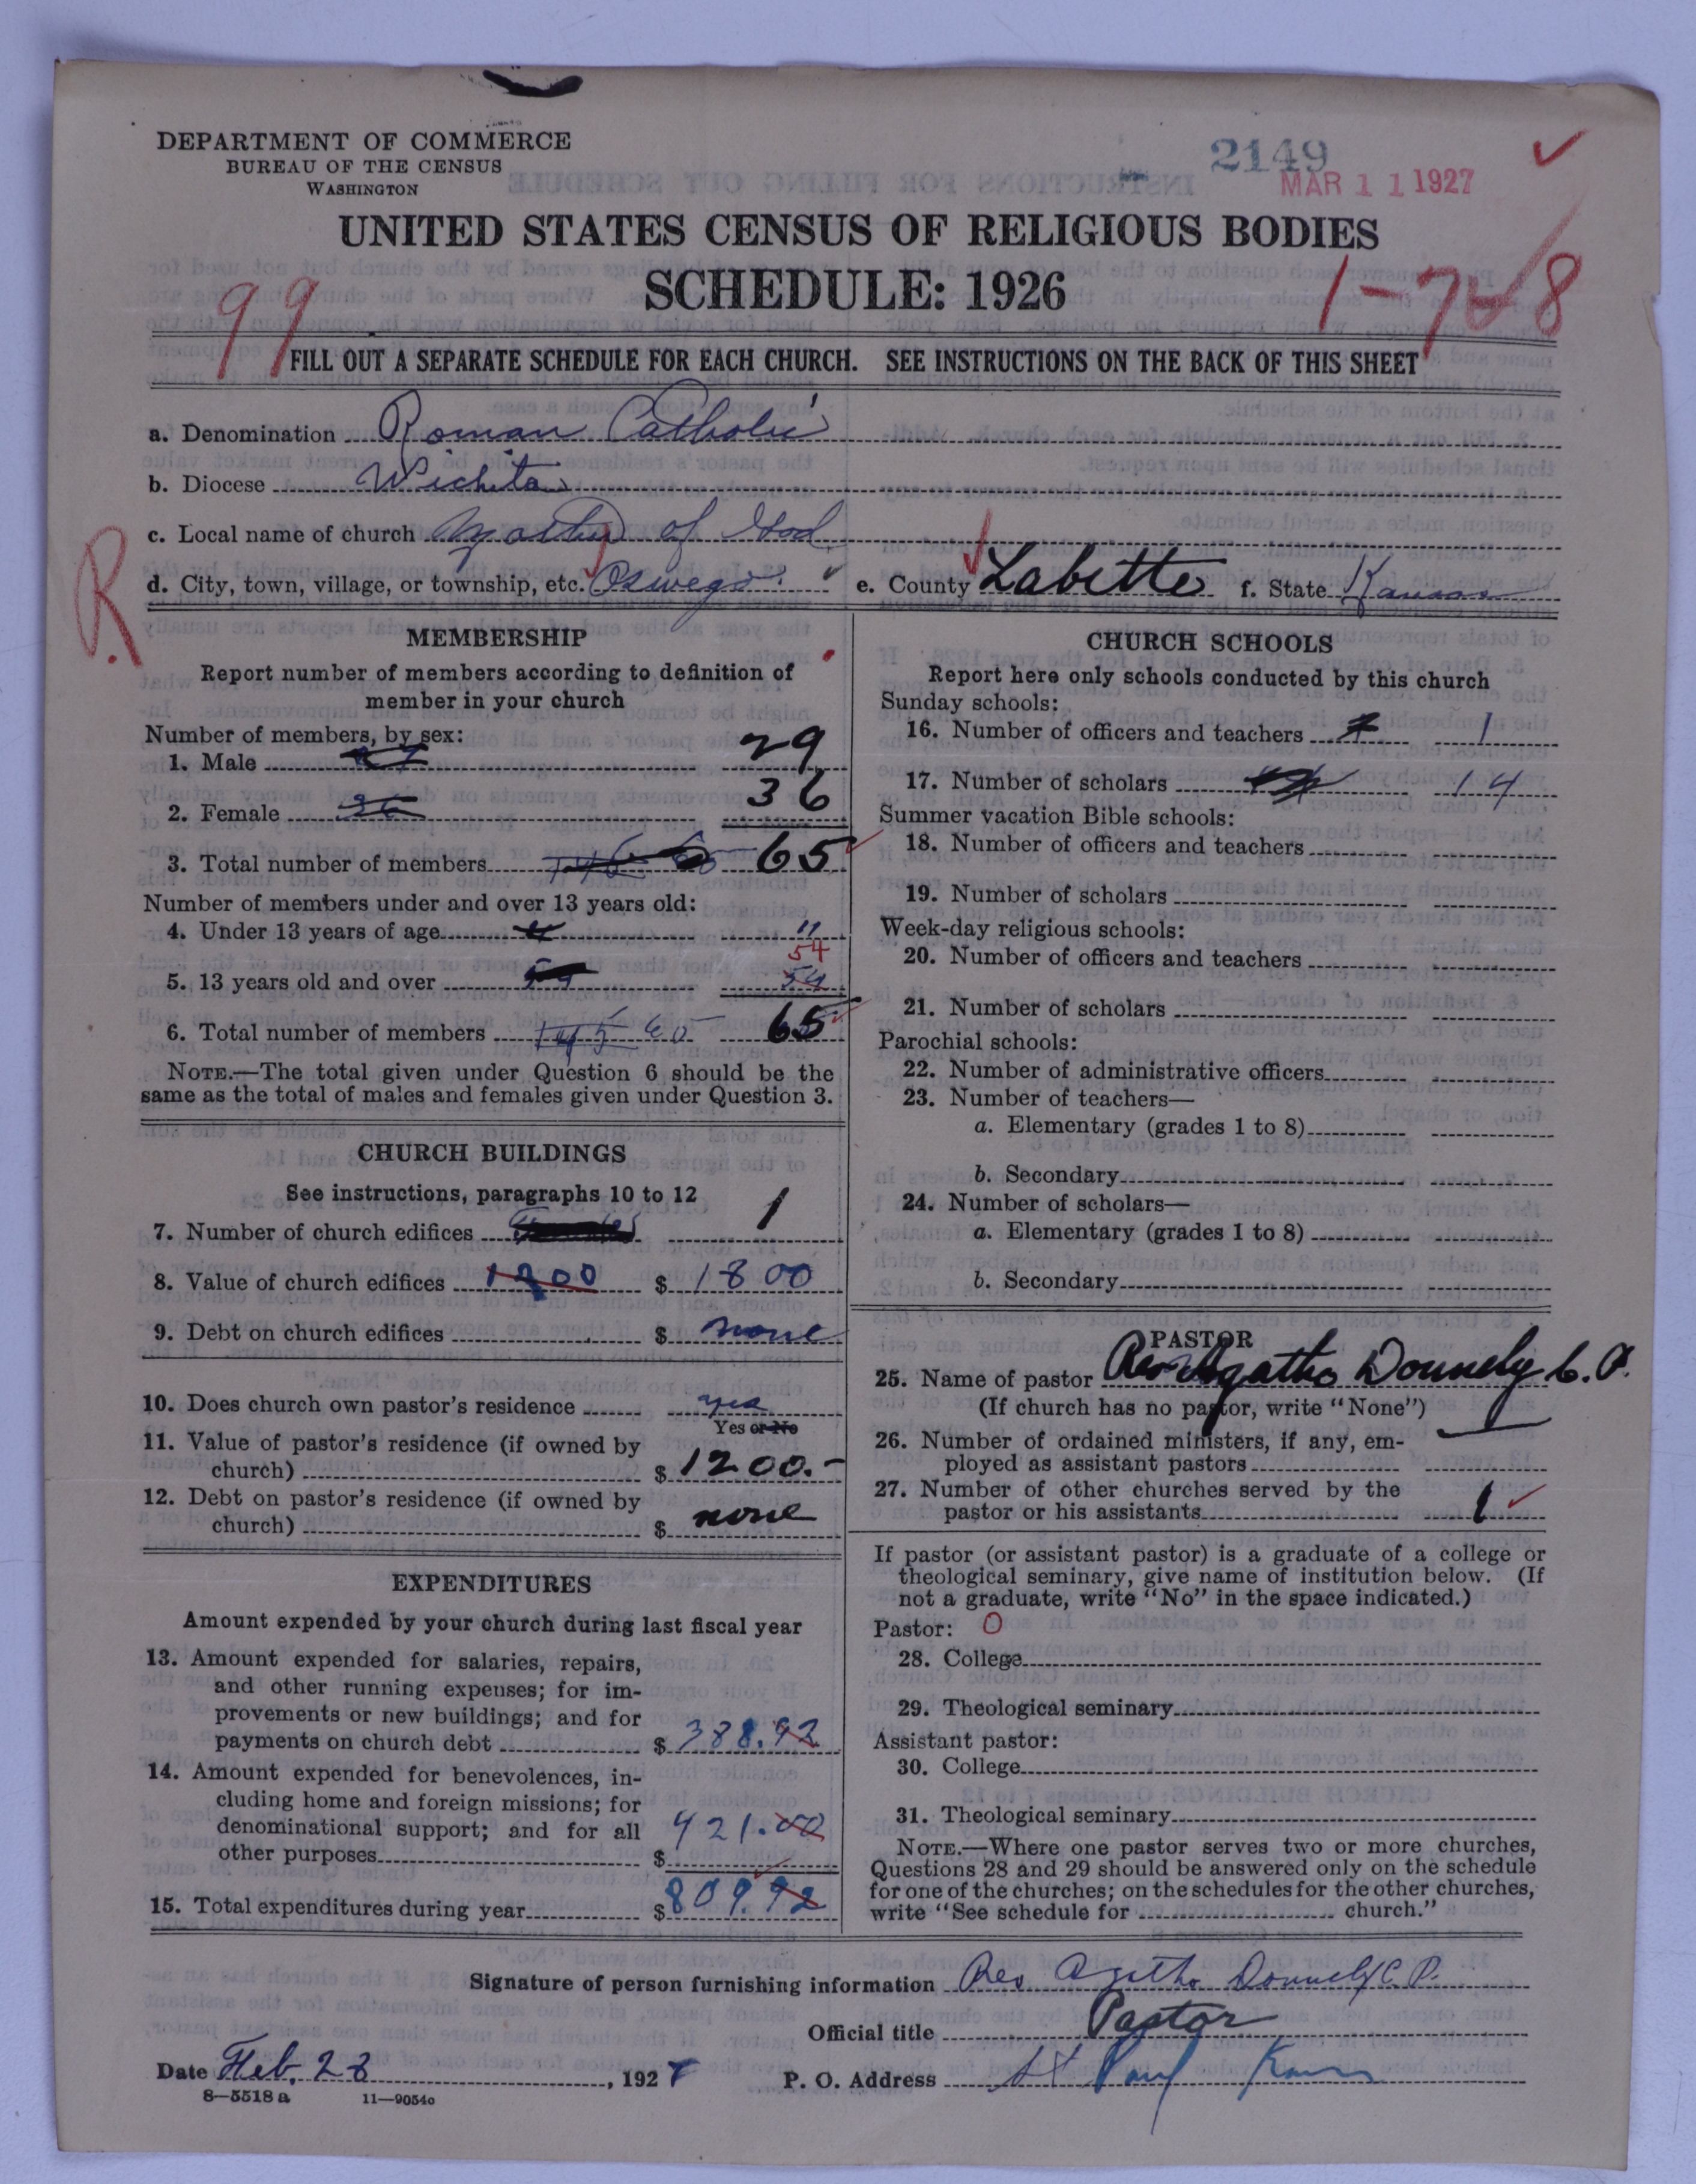 DEPARTMENT OF COMMERCE
BUREAU OF THE CENSUS
WASHINGTON
2149
MAR 11 1927
UNITED STATES CENSUS OF RELIGIOUS BODIES
SCHEDULE: 1926
99
1-7-8
FILL OUT A SEPARATE SCHEDULE FOR EACH CHURCH. SEE INSTRUCTIONS ON THE BACK OF THIS SHEET
a. Denomination Roman Catholic
b. Diocese Wichita
c. Local name of church Mother of God
R.
d. City, town, village, or township, etc. Oswego e. County Labette f. State Kansas
MEMBERSHIP
Report number of members according to definition of
member in your church
Number of members, by sex:
1. Male 29
2. Female 36 36
3. Total number of members 65
Number of members under and over 13 years old:
4. Under 13 years of age 11
54
5. 13 years old and over 54
6. Total number of members 145 65 65
NOTE.—The total given under Question 6 should be the
same as the total of males and females given under Question 3.
CHURCH BUILDINGS
See instructions, paragraphs 10 to 12
7. Number of church edifices 1
8. Value of church edifices 1800 $ 1800
9. Debt on church edifices $ none
10. Does church own pastor's residence yes
Yes or No
11. Value of pastor's residence (if owned by
church) $ 1200.-
12. Debt on pastor's residence (if owned by
church) $ none
EXPENDITURES
Amount expended by your church during last fiscal year
13. Amount expended for salaries, repairs,
and other running expenses; for im-
provements or new buildings; and for
payments on church debt $ 388.92
14. Amount expended for benevolences, in-
cluding home and foreign missions; for
denominational support; and for all
other purposes $ 421.00
15. Total expenditures during year $ 809.92
CHURCH SCHOOLS
Report here only schools conducted by this church
Sunday schools:
16. Number of officers and teachers 1
17. Number of scholars 14
Summer vacation Bible schools:
18. Number of officers and teachers
19. Number of scholars
Week-day religious schools:
20. Number of officers and teachers
21. Number of scholars
Parochial schools:
22. Number of administrative officers
23. Number of teachers—
a. Elementary (grades 1 to 8)
b. Secondary
24. Number of scholars—
a. Elementary (grades 1 to 8)
b. Secondary
PASTOR
25. Name of pastor Rev Agatho Donnely C. P.
(If church has no pastor, write "None")
26. Number of ordained ministers, if any, em-
ployed as assistant pastors
27. Number of other churches served by the
pastor or his assistants 1
If pastor (or assistant pastor) is a graduate of a college or
theological seminary, give name of institution below. (If
not a graduate, write "No" in the space indicated.)
Pastor: O
28. College
29. Theological seminary
Assistant pastor:
30. College
31. Theological seminary
NOTE.—Where one pastor serves two or more churches,
Questions 28 and 29 should be answered only on the schedule
for one of the churches; on the schedules for the other churches,
write "See schedule for church."
Signature of person furnishing information Rev Agatho Donnely C. P.
Official title Pastor
Date Feb. 28, 1927 P. O. Address St Paul Kans
8—5518 a 11—9054c